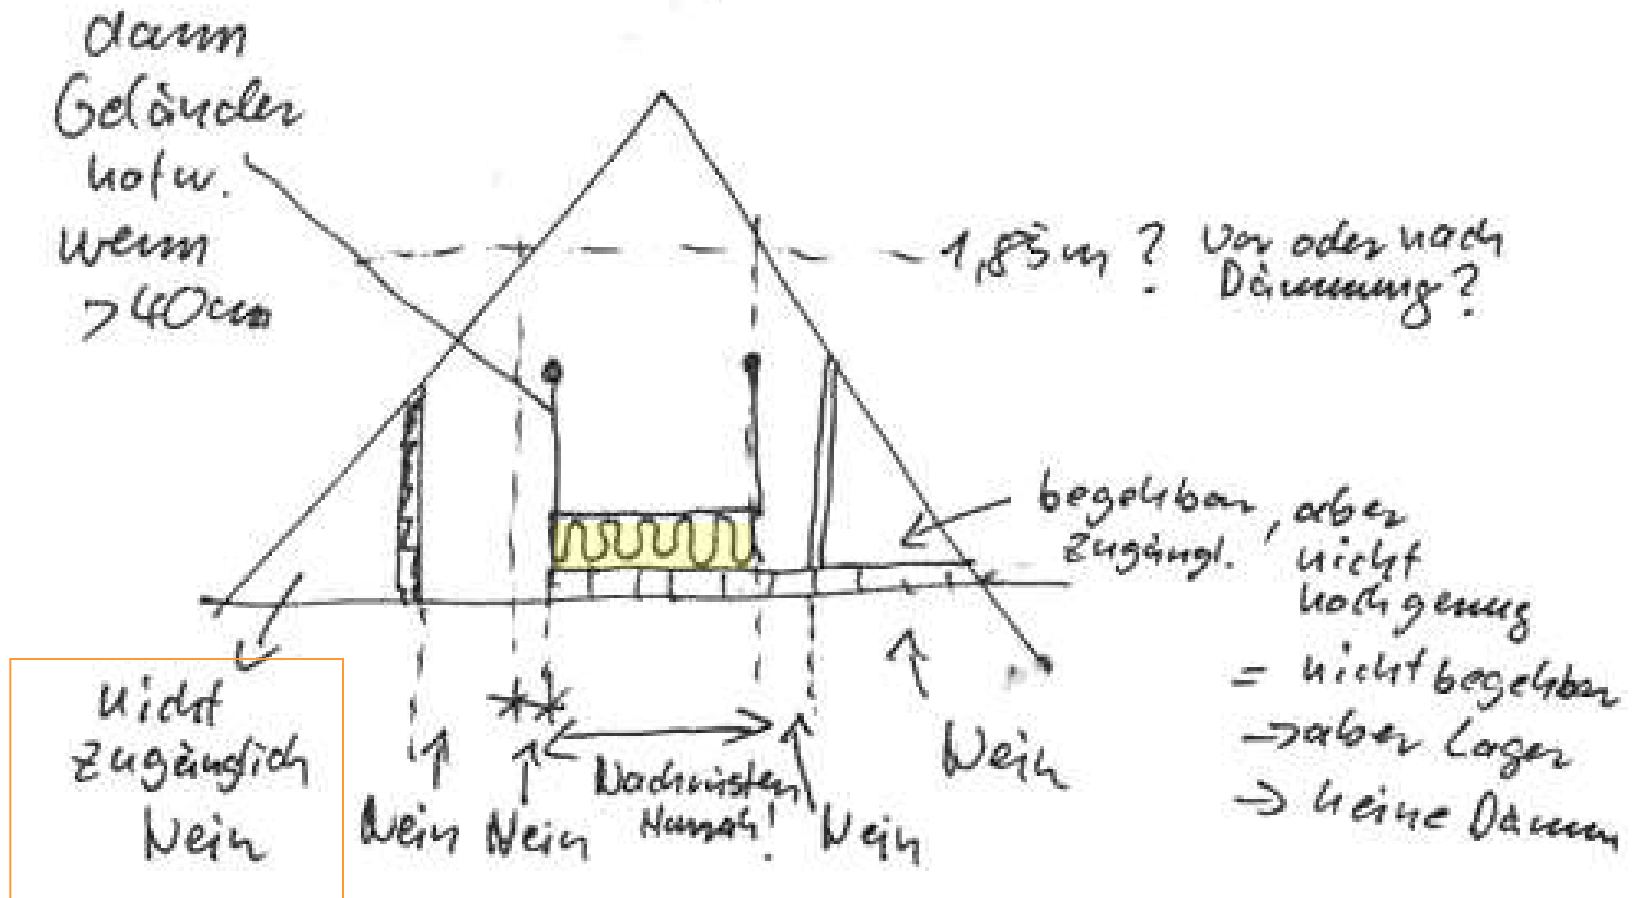 dann
Geländer
notw.
wenn
>40cm
1,85m ? Vor oder nach
Dämmung?
begehbar,
zugängl.
aber
nicht
hoch genug
= nicht begehbar
→ aber Lager
→ keine Dämm
nicht
zugänglich
Nein
Nein
**
Nein
Nachrüsten
Hurrah!
Nein
Nein